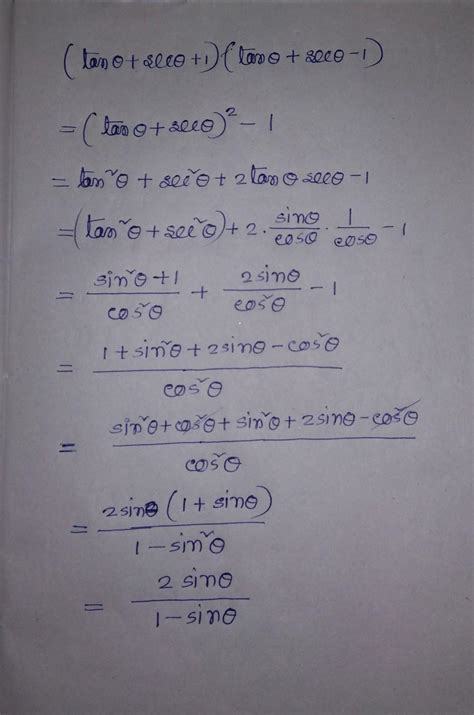 (tanθ+secθ+1)(tanθ+secθ-1)
=(tanθ+secθ)²-1
=tan²θ+sec²θ+2tanθsecθ-1
=(tan²θ+sec²θ)+2·sinθ/cosθ·1/cosθ-1
=sin²θ+1/cos²θ+2sinθ/cos²θ-1
=1+sin²θ+2sinθ-cos²θ/cos²θ
=sin²θ+cos²θ+sin²θ+2sinθ-cos²θ/cos²θ
=2sinθ(1+sinθ)/1-sin²θ
=2sinθ/1-sinθ